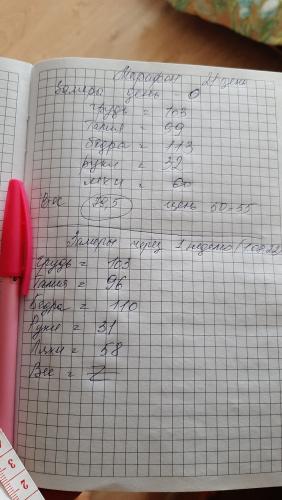 Марафон 21 день
Замеры день 0
Грудь = 103
Талия = 99
бедра = 113
руки = 32
ляхи = 60
Вес 79,5 цель 50-55
Замеры через 1 неделю
Грудь = 103
Талия = 96
Бедра = 110
Руки = 31
Ляхи = 58
Вес =
2
3